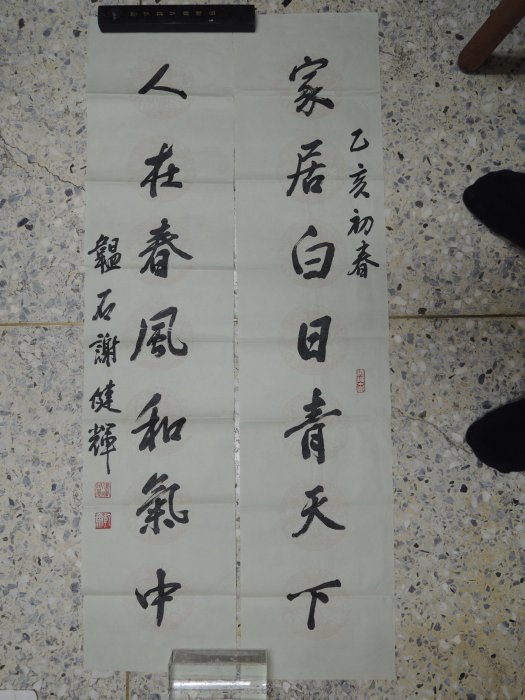 乙亥初春
家居白日青天下
人在春風和氣中
韞石謝健輝